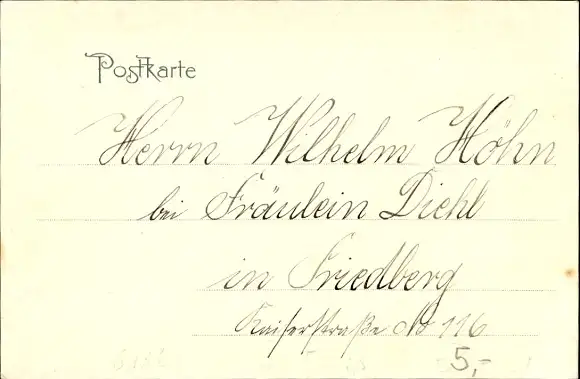 Postkarte
Herrn Wilhelm Höhn
bei Fräulein Diehl
in Friedberg
Kaiserstraße No 116
5,-